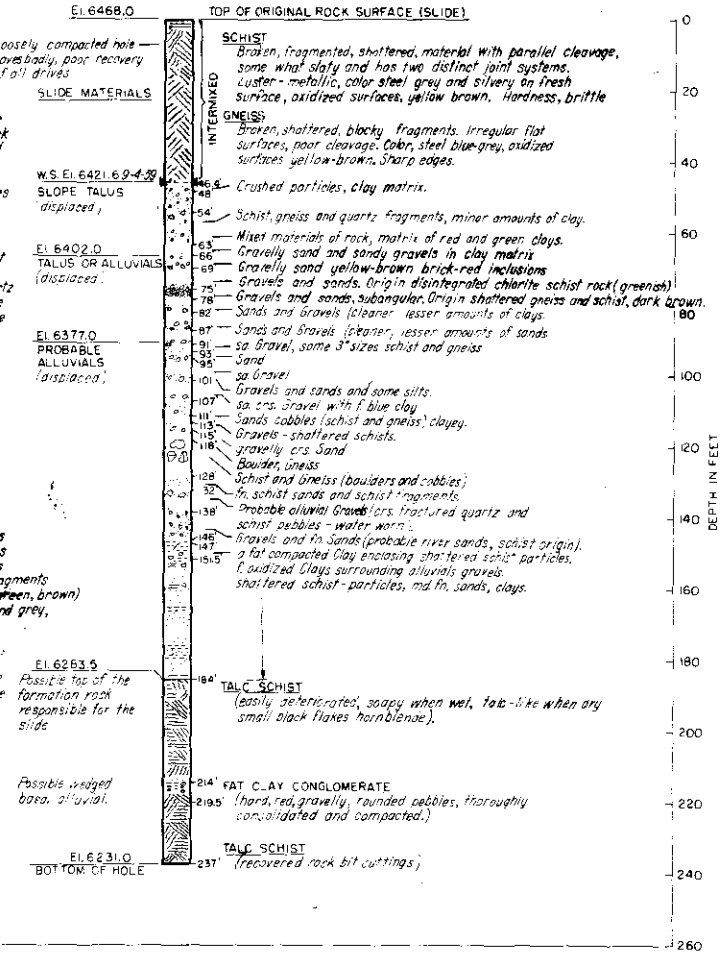 El. 6468.0
TOP OF ORIGINAL ROCK SURFACE (SLIDE)
oosely compacted hole
oves badly, poor recovery
f all drives
SLIDE MATERIALS
W.S. El. 6421.6 9-4-59
SLOPE TALUS
(displaced)
El. 6402.0
TALUS OR ALLUVIALS
(displaced)
El. 6377.0
PROBABLE
ALLUVIALS
(displaced)
agments
reen, brown)
nd grey,
El. 6283.5
Possible top of the
formation rock
responsible for the
slide
Possible wedged
alluvial.
El. 6231.0
BOTTOM OF HOLE
INTERMIXED
SCHIST
Broken, fragmented, shattered, material with parallel cleavage,
some what slaty and has two distinct joint systems.
Luster - metallic, color steel grey and silvery on fresh
surface, oxidized surfaces, yellow brown. Hardness, brittle
GNEISS
Broken, shattered, blocky fragments. Irregular flat
surfaces, poor cleavage. Color, steel blue-grey, oxidized
surfaces yellow-brown. Sharp edges.
48' Crushed particles, clay matrix.
54' Schist, gneiss and quartz fragments, minor amounts of clay.
63' Mixed materials of rock, matrix of red and green clays.
66' Gravelly sand and sandy gravels in clay matrix
69' Gravelly sand yellow-brown brick-red inclusions
75' Gravels and sands. Origin disintegrated chlorite schist rock (greenish)
78' Gravels and sands, subangular. Origin shattered gneiss and schist, dark brown.
82' Sands and Gravels (cleaner lesser amounts of clays.
87' Sands and Gravels (cleaner, lesser amounts of sands
91' sa. Gravel, some 3" sizes schist and gneiss
93' Sand
95' sa. Gravel
101' Gravels and sands and some silts.
107' sa. crs. Gravel with f. blue clay
111' Sands cobbles (schist and gneiss) clayey.
113' Gravels - shattered schists.
115' gravelly crs. Sand
118' Boulder, Gneiss
128' Schist and Gneiss (boulders and cobbles)
32' fn. schist sands and schist fragments.
138' Probable alluvial Gravels (crs. fractured quartz and
schist pebbles - water worn).
146' Gravels and fn. Sands (probable river sands, schist origin).
147' a fat compacted Clay enclosing shattered schist particles.
151.5' f. oxidized Clays surrounding alluvials gravels.
shattered schist - particles, md. fn. sands, clays.
184' TALC SCHIST
(easily deteriorated, soapy when wet, talc-like when dry
small black flakes hornblende).
214' FAT CLAY CONGLOMERATE
219.5' (hard, red, gravelly, rounded pebbles, thoroughly
consolidated and compacted.)
237' TALC SCHIST
(recovered rock bit cuttings)
0
20
40
60
80
100
120
140
160
180
200
220
240
260
DEPTH IN FEET